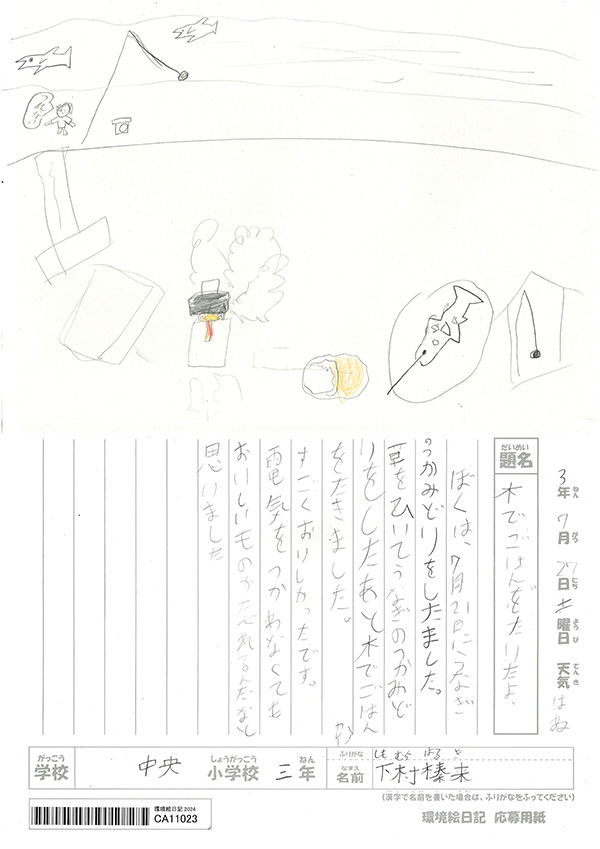 3年 7月 27日 土曜日 天気 はれ
ねん がつ にち ようび てんき
だいめい
題名
木でごはんをたいたよ、
ぼくは、7月21日にうなぎ
のつかみどりをしたました。
草をひいてうなぎのつかみど
りをしたあと木でごはん
をたきました。
すごくおいしかったです。
電気をつかわなくても
おいしいものが志れるんだなと
思いました
がっこう
学校
中央
しょうがっこう
小学校
三
ねん
年
ふりがな
しも むら はる と
なまえ
名前
下村榛来
(漢字で名前を書いた場合は、ふりがなをふってください)
環境絵日記 応募用紙
環境絵日記 2024
CA11023